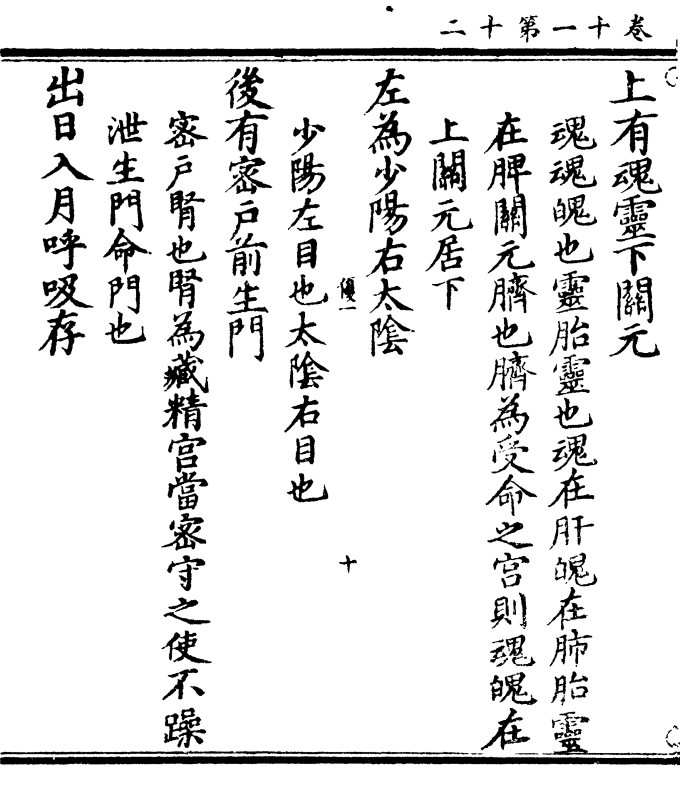 卷十一第十二
上有魂靈下關元
魂魂魄也靈胎靈也魂在肝魄在肺胎靈
在脾關元臍也臍為受命之宮則魂魄在
上關元居下
左為少陽右太陰
優一
十
少陽左目也太陰右目也
後有密戶前生門
密戶腎也腎為藏精宮當密守之使不躁
泄生門命門也
出日入月呼吸存